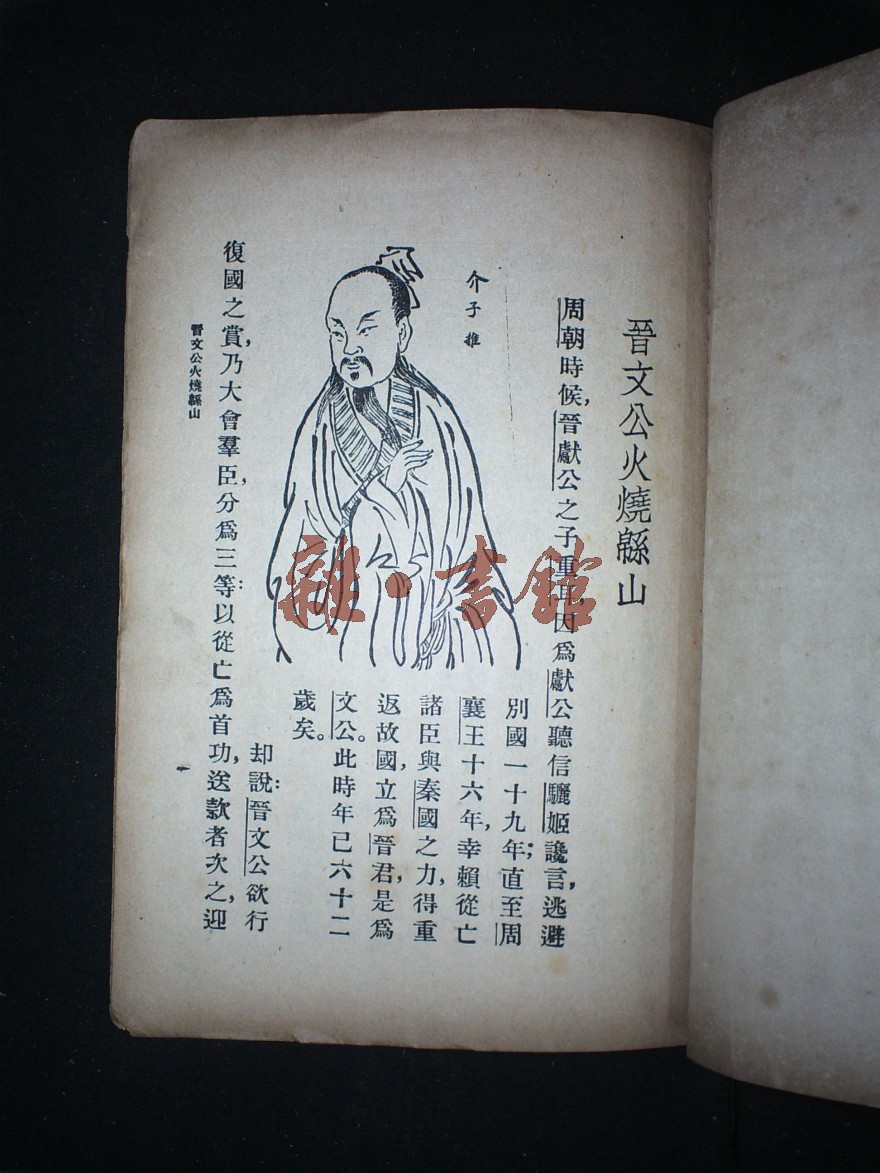 晉文公火燒緜山
周朝時候，晉獻公之子重耳，因爲獻公聽信驪姬讒言，逃避
別國一十九年；直至周
襄王十六年，幸賴從亡
諸臣與秦國之力，得重
返故國，立爲晉君，是爲
文公。此時年已六十二
歲矣。
介子推
却說：晉文公欲行
復國之賞，乃大會羣臣，分爲三等：以從亡爲首功，送款者次之，迎
晉文公火燒緜山
雜·書館